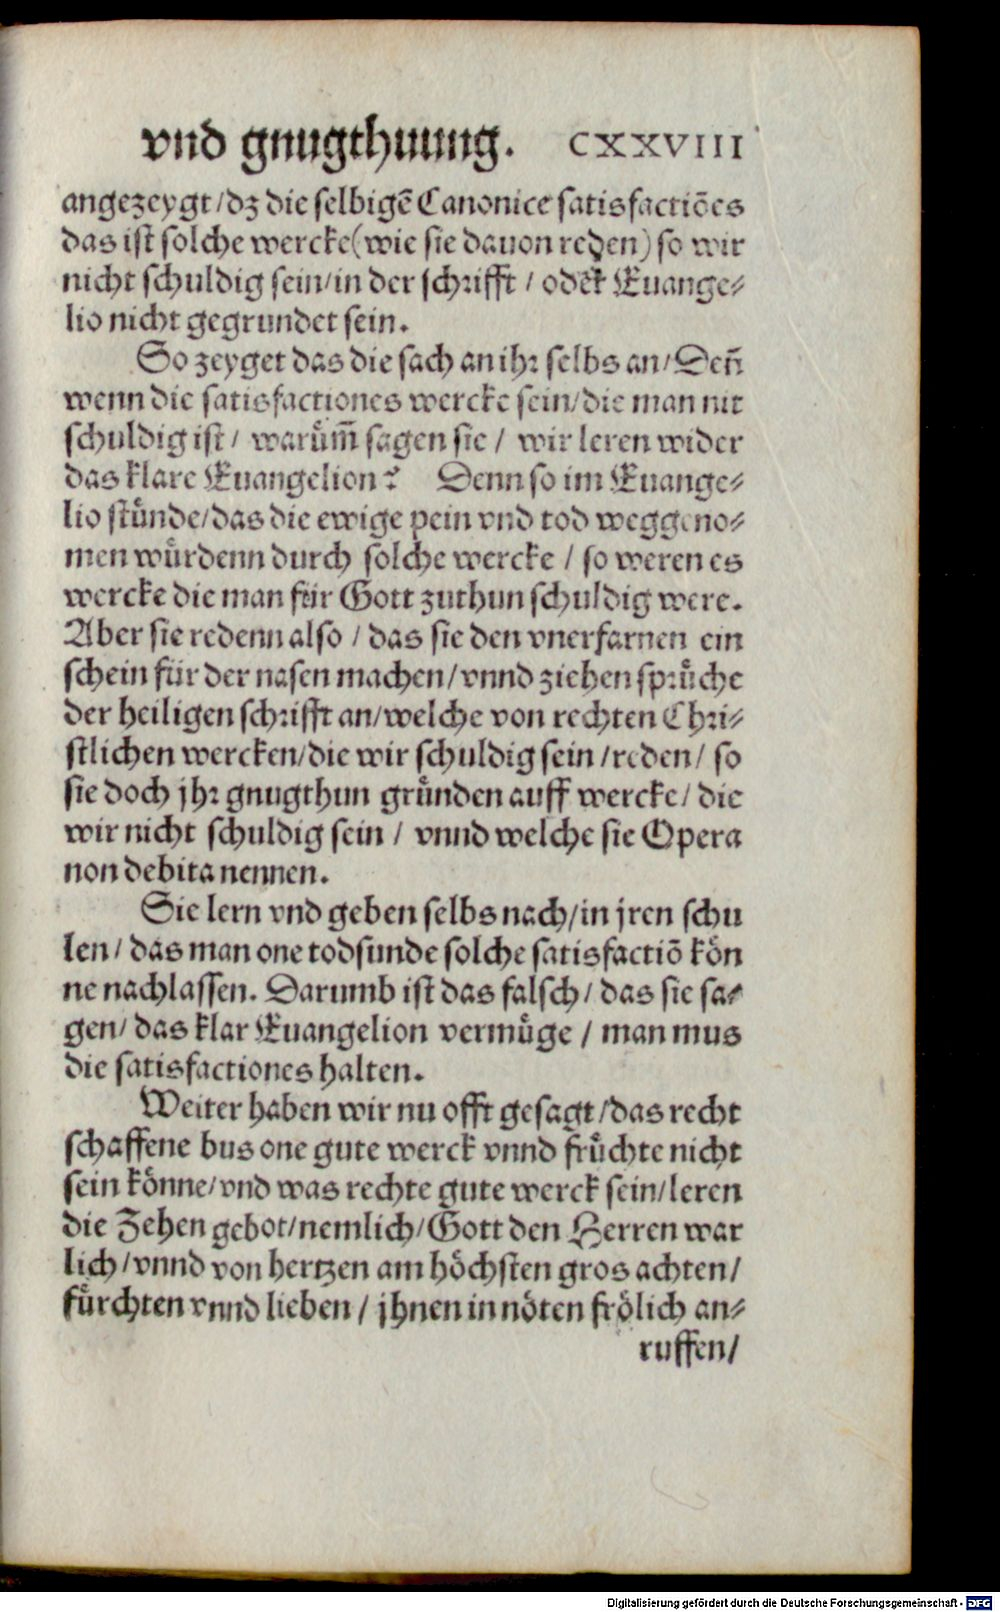 vnd gnugthuung. CXXVIII
angezeygt/dz die selbigē Canonice satisfactiōes
das ist solche wercke(wie sie dauon reden) so wir
nicht schuldig sein/in der schrifft / oder Euange⸗
lio nicht gegrundet sein.
So zeyget das die sach an ihr selbs an/Deñ
wenn die satisfactiones wercke sein/die man nit
schuldig ist / waruͤm̄ sagen sie / wir leren wider
das klare Euangelion? Denn so im Euange⸗
lio stuͤnde/das die ewige pein vnd tod weggeno⸗
men wuͤrdenn durch solche wercke / so weren es
wercke die man fuͤr Gott zuthun schuldig were.
Aber sie redenn also / das sie den vnerfarnen ein
schein fuͤr der nasen machen/vnnd ziehen spruͤche
der heiligen schrifft an/welche von rechten Chri⸗
stlichen wercken/die wir schuldig sein /reden/ so
sie doch jhr gnugthun gruͤnden auff wercke/ die
wir nicht schuldig sein / vnnd welche sie Opera
non debita nennen.
Sie lern vnd geben selbs nach/in jren schu
len/ das man one todsunde solche satisfactiō koͤn
ne nachlassen. Darumb ist das falsch/ das sie sa⸗
gen/ das klar Euangelion vermuͤge / man mus
die satisfactiones halten.
Weiter haben wir nu offt gesagt/das recht
schaffene bus one gute werck vnnd fruͤchte nicht
sein koͤnne/vnd was rechte gute werck sein/leren
die Zehen gebot/nemlich/Gott den Herren war
lich/vnnd von hertzen am hoͤchsten gros achten/
fuͤrchten vnnd lieben / jhnen in noͤten froͤlich an⸗
ruffen/
Digitalisierung gefördert durch die Deutsche Forschungsgemeinschaft - DFG